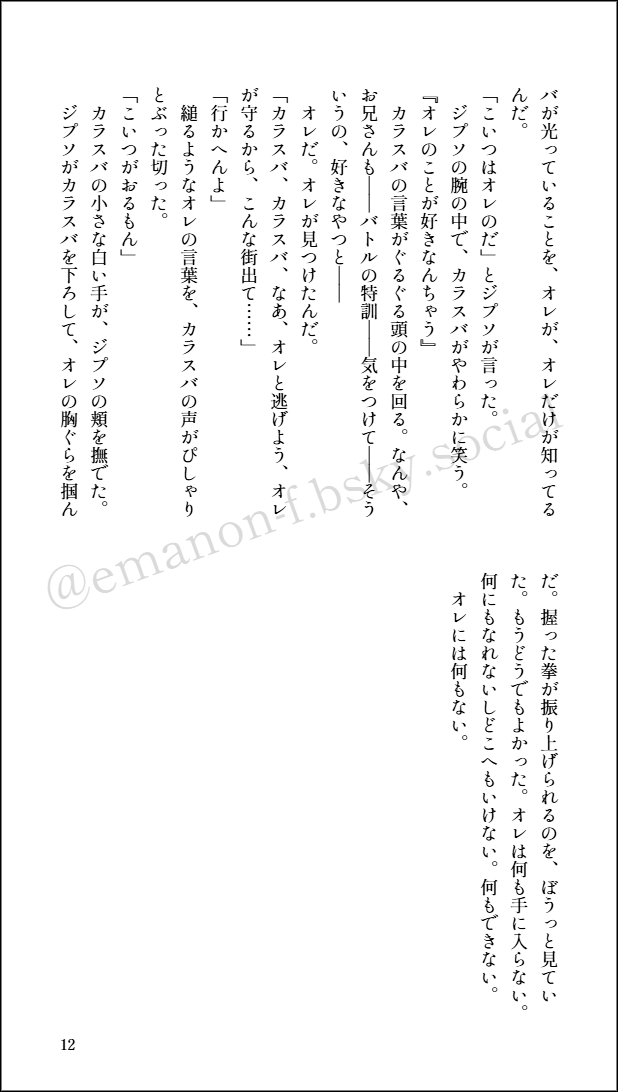 バが光っていることを、オレが、オレだけが知ってる
んだ。
「こいつはオレのだ」とジプソが言った。
　ジプソの腕の中で、カラスバがやわらかに笑う。
『オレのことが好きなんちゃう』
　カラスバの言葉がぐるぐる頭の中を回る。なんや、
お兄さんも――バトルの特訓――気をつけて――そう
いうの、好きなやつと――
　オレだ。オレが見つけたんだ。
「カラスバ、カラスバ、なあ、オレと逃げよう、オレ
が守るから、こんな街出て……」
「行かへんよ」
　縋るようなオレの言葉を、カラスバの声がぴしゃり
とぶった切った。
「こいつがおるもん」
　カラスバの小さな白い手が、ジプソの頬を撫でた。
　ジプソがカラスバを下ろして、オレの胸ぐらを掴ん
だ。握った拳が振り上げられるのを、ぼうっと見てい
た。もうどうでもよかった。オレは何も手に入らない。
何にもなれないしどこへもいけない。何もできない。
　オレには何もない。
@emanon-f.bsky.social
12